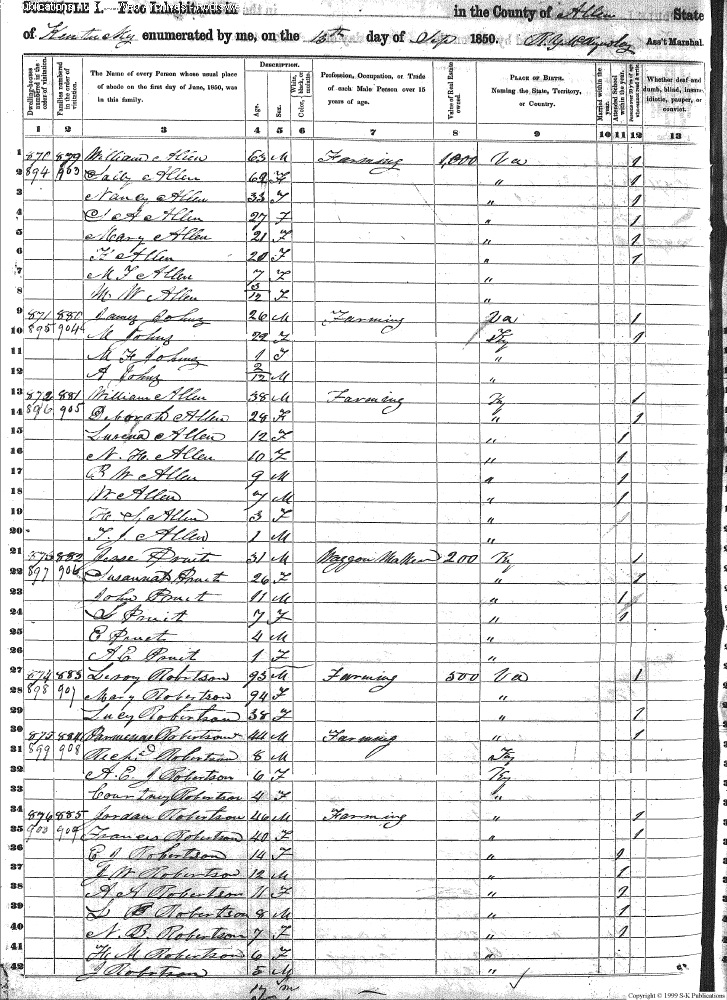 SCHEDULE I.—Free Inhabitants in in the County of Allen State
of Kentucky enumerated by me, on the 13th day of Sep 1850. Ass't Marshal.
Dwelling-houses numbered in the order of visitation.
Families numbered in the order of visitation.
The Name of every Person whose usual place of abode on the first day of June, 1850, was in this family.
DESCRIPTION.
Age.
Sex.
White, black, or mulatto.
Color,
Profession, Occupation, or Trade of each Male Person over 15 years of age.
Value of Real Estate owned.
PLACE OF BIRTH.
Naming the State, Territory, or Country.
Married within the year.
Attended School within the year.
Whether deaf and dumb, blind, insane, idiotic, pauper, or convict.
1 2 3 4 5 6 7 8 9 10 11 12 13
1 870 879 William Allen 63 M Farming 1,000 Va 1
2 894 903 Sally Allen F " 1
3 Nancy Allen 33 F " 1
4 Allen 27 F " 1
5 Mary Allen 21 F " 1
6 F Allen 20 F " 1
7 M F Allen 7 F "
8 M W Allen 3/12 F "
9 871 880 James Johns 26 M Farming Va 1
10 895 904 M Johns 22 F Ky 1
11 M F Johns 1 F "
12 A Johns 2/12 M "
13 872 881 William Allen 38 M Farming Ky 1
14 896 905 Deborah Allen 28 F " 1
15 Lurena Allen 12 F " 1
16 N. H. Allen 10 F " 1
17 B W Allen 9 M " 1
18 W Allen 7 M " 1
19 Allen 3 F "
20 T. J. Allen 1 M "
21 873 882 Jesse Pruit 31 M Waggon Maker 200 Ky 1
22 897 906 Susannah Pruit 26 F " 1
23 John Pruit 11 M " 1
24 S Pruit 7 F " 1
25 E Pruit 4 M "
26 A. E. Pruit 1 F "
27 874 883 Leroy Robertson 95 M Farming 500 Va 1
28 898 907 Mary Robertson 94 F "
29 Lucy Robertson 38 F " 1
30 875 884 Parmenas Robertson 44 M Farming " 1
31 899 908 Richd Robertson 8 M Ky
32 A. E. J Robertson 6 F Ky
33 Courtney Robertson 4 F "
34 876 885 Jordan Robertson 46 M Farming " 1
35 900 909 Frances Robertson 40 F " 1
36 E J Robertson 14 F " 1
37 J W Robertson 12 M " 1
38 A A Robertson 11 F " 1
39 L B Robertson 8 M " 1
40 N. B. Robertson 7 F " 1
41 H. M Robertson 6 F "
42 J Robertson 5 M "
17 m
Copyright © 1999 S-K Publications